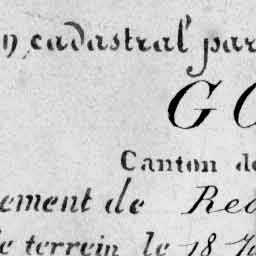 n cadastral par
GO
Canton de
ement de Red
le terrein le 18 Ju